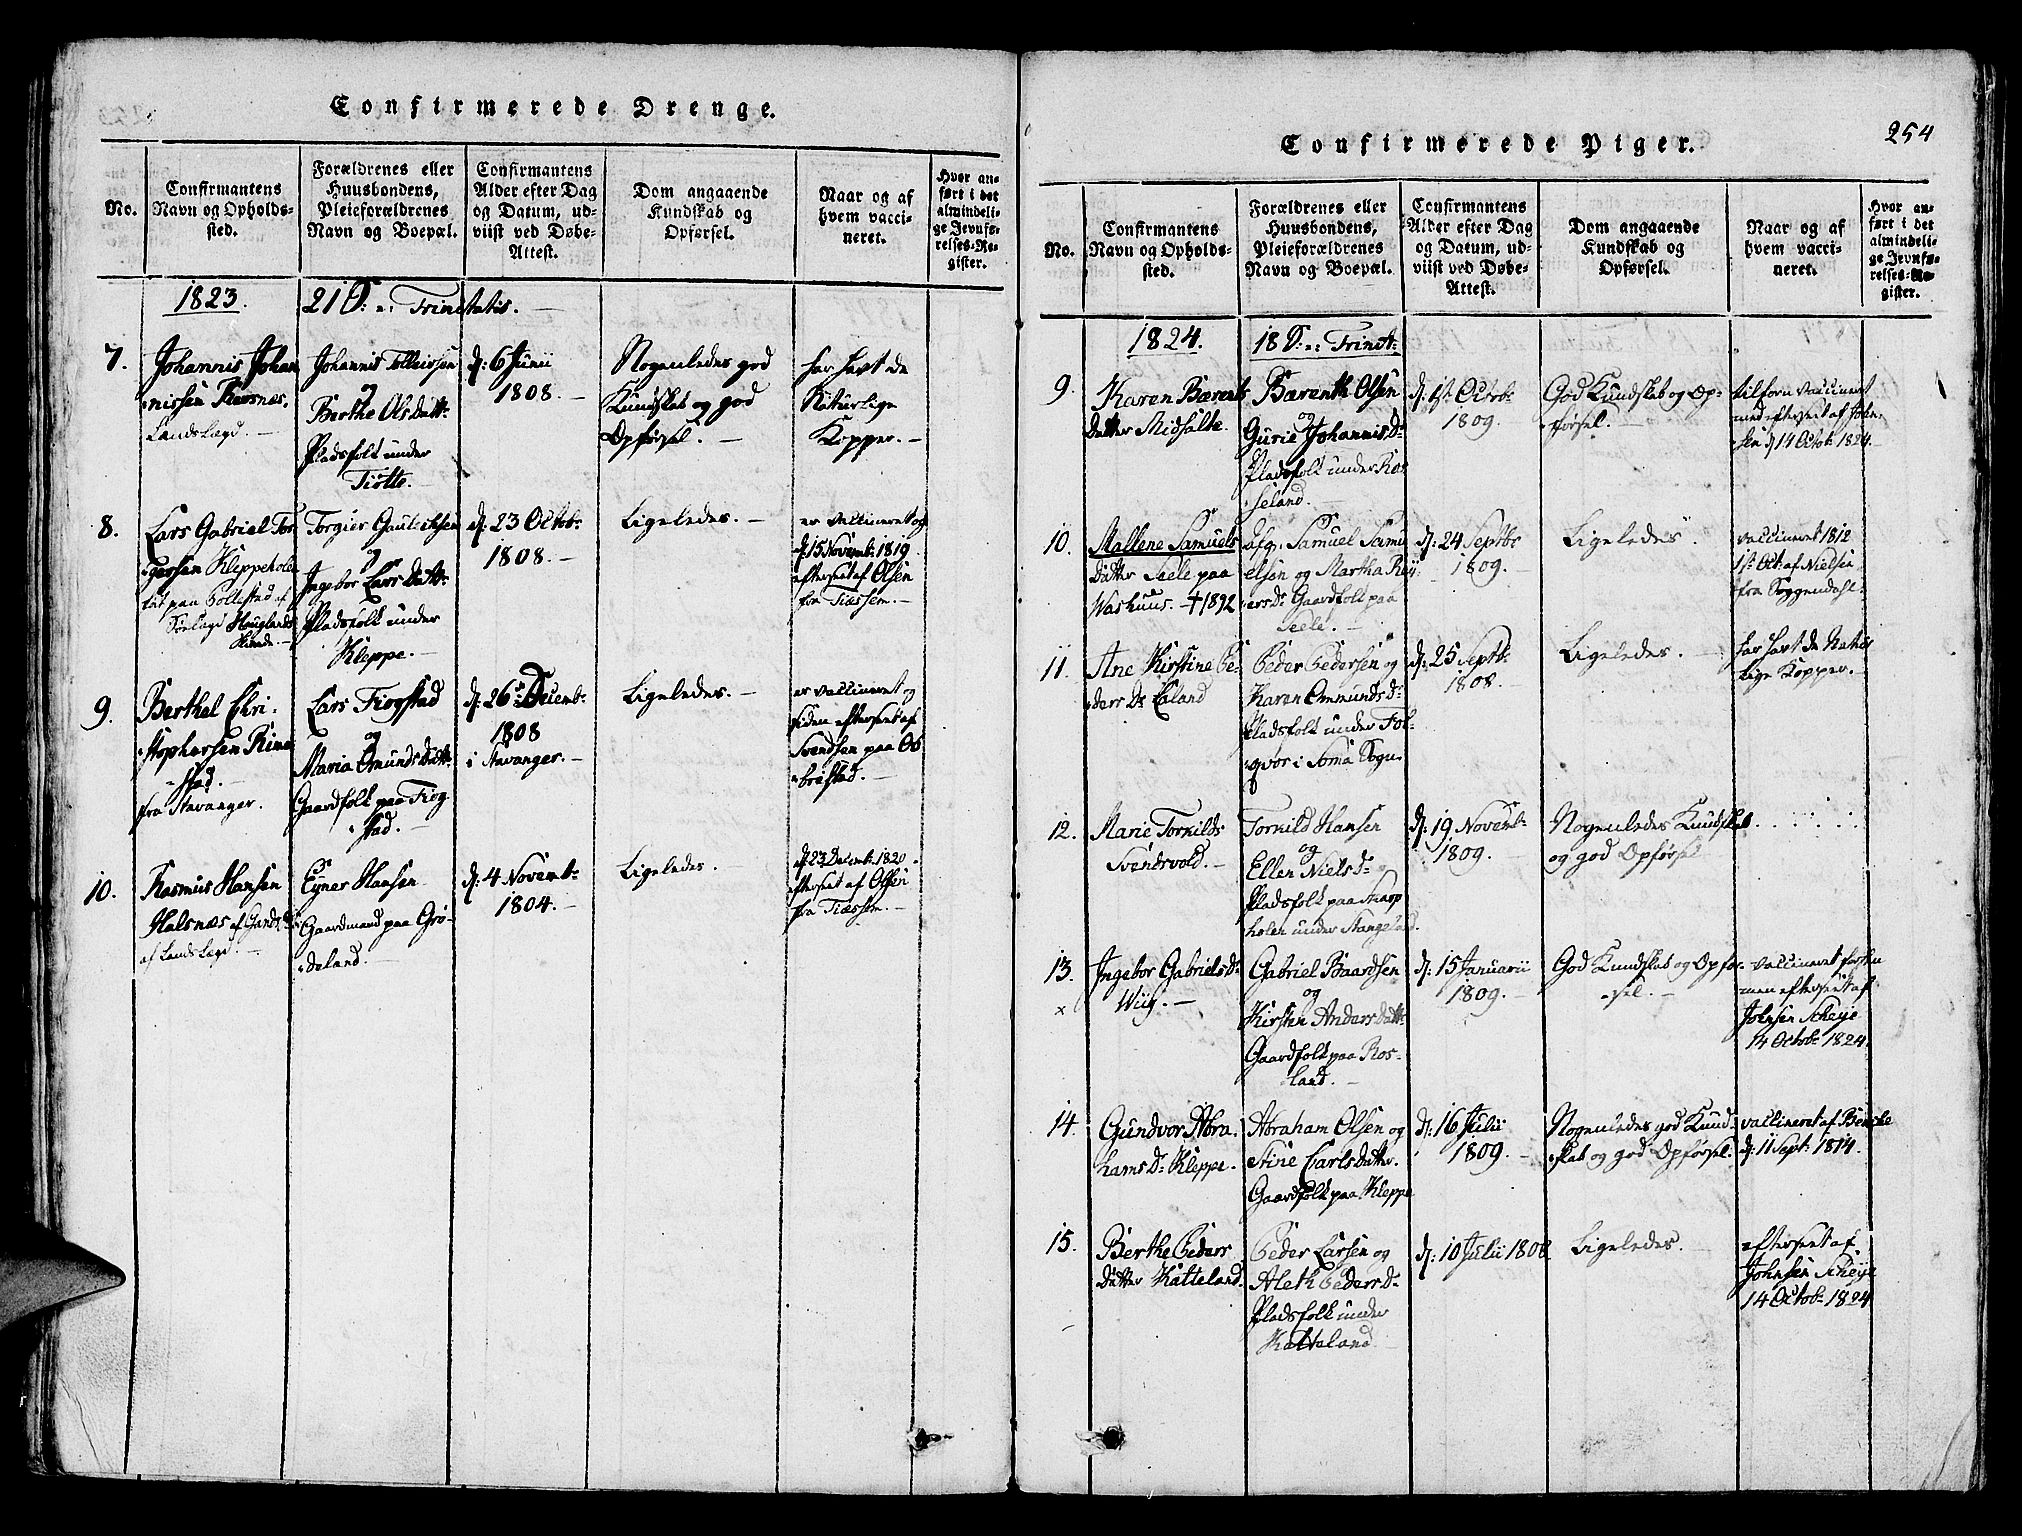 Confirmerede Drenge.
No.
Confirmantens
Navn og Opholds-
sted.
Forældrenes eller
Huusbondens,
Pleieforældrenes
Navn og Boepæl.
Confirmantens
Alder efter Dag
og Datum, ud-
viist ved Døbe-
Attest.
Dom angaaende
Kundskab og
Opførsel.
Naar og af
hvem vacci-
neret.
Hvor an-
ført i det
almindeli-
ge Jevnfø-
relses-Re-
gister.
1823.
21 S: n: Trinitatis.
7.
Johannis Johan
nissen
Landslægd.
Johannis Tollevsen
og
Berthe Ols Datt:
Pladsfolk under
Tiøtte.
d: 6 Junii
1808.
Nogenledes god
Kundskab og god
Opførsel.
har havt de
Naturlige
Kopper.
8.
Lars Gabriel Tor
gersen Kleppeholen
Søelægd
Torgier Gautichsen
og
Ingebor Lars Datt:
Pladsfolk under
Kleppe.
d: 23 Octob:
1808.
Ligeledes.
er vaccineret og
d 15 Novemb: 1819
efterseet af Olsen
fra Tiæssem.
9.
Berthel Chri-
stophersen Rime
stad.
fra Stavanger.
Lars Fiogstad
og
Maria Omunds Datt:
Gaardfolk paa Fiog
stad.
d: 26 Decemb:
1808
i Stavanger.
Ligeledes.
er vaccineret og
siden efterseet af
Svendsen paa Ob
brestad.
10.
Rasmus Hansen
Halsnæs
af Lands Lægd.
Eyner Hansen
Gaardmand paa Grø-
deland.
d: 4 Novemb:
1804.
Ligeledes.
d 23 Decemb. 1820
efterseet af Olsen
fra Tiæssem.
254
Confirmerede Piger.
No.
Confirmantens
Navn og Opholds-
sted.
Forældrenes eller
Huusbondens,
Pleieforældrenes
Navn og Boepæl.
Confirmantens
Alder efter Dag
og Datum, ud-
viist ved Døbe-
Attest.
Dom angaaende
Kundskab og
Opførsel.
Naar og af
hvem vacci-
neret.
Hvor an-
ført i det
almindeli-
ge Jevnfø-
relses-Re-
gister.
1824.
18 S: n: Trinit:
9.
Karen Bærents
Datter Midsalte.
Bærenth Olsen
og
Gurie Johannis D:
Pladsfolk under Ros
seland.
d: 1st Octob:
1809.
God Kundskab og Op-
førsel.
tilforn vaccineret
med efterseet af John
sen d 14 Octob. 1824.
10.
Mallene Samuels
Datter Seele paa
Washuus. † 1892
afg. Samuel Samu
elsen og Martha Rei
ers D: Gaardfolk paa
Seele.
d: 24 Septb:
1809.
Ligeledes.
vaccineret 1812
1st Oct. af Nielsen
fra Soggendahl.
11.
Ane Kirstine Pe-
ders D:
Peder Pedersen og
Karen Ommunds D:
Pladsfolk under Fol-
qvor i Soma Sogn.
d: 25 Septb:
1808.
Ligeledes.
har havt de Natur
lige Kopper.
12.
Marie Torkilds
Svendsvold.
Torkild Hansen
og
Ellen Niels D:
Pladsfolk paa Skarp
holen under Stangeland.
d: 19 Novemb:
1809.
Nogenledes Kundskab
og god Opførsel
13.
x
Ingebor Gabriels D:
Wiig.
Gabriel Baardsen
og
Kirsten Anders Datt:
Gaardfolk paa Ros-
land.
d: 15 Januarii
1809.
God Kundskab og Opfør-
sel.
vaccineret forhen
men efterseet af
Johnsen Scheye
14 Octob: 1824.
14.
Gundvor Abra
hams D: Kleppe.
Abraham Olsen og
Stine Carls Datter.
Gaardfolk paa Kleppe
d: 16 Julii
1809.
Nogenledes god Kund
skab og god Opførsel.
vaccineret af
d: 11 Sept. 1814.
15.
Berthe Peders
Datter Katteland.
Peder Larsen og
Aleth Peders D:
Pladsfolk under
Katteland
d: 10 Julii 1808
Ligeledes.
efterseet af
Johnsen Scheye
14 Octob: 1824